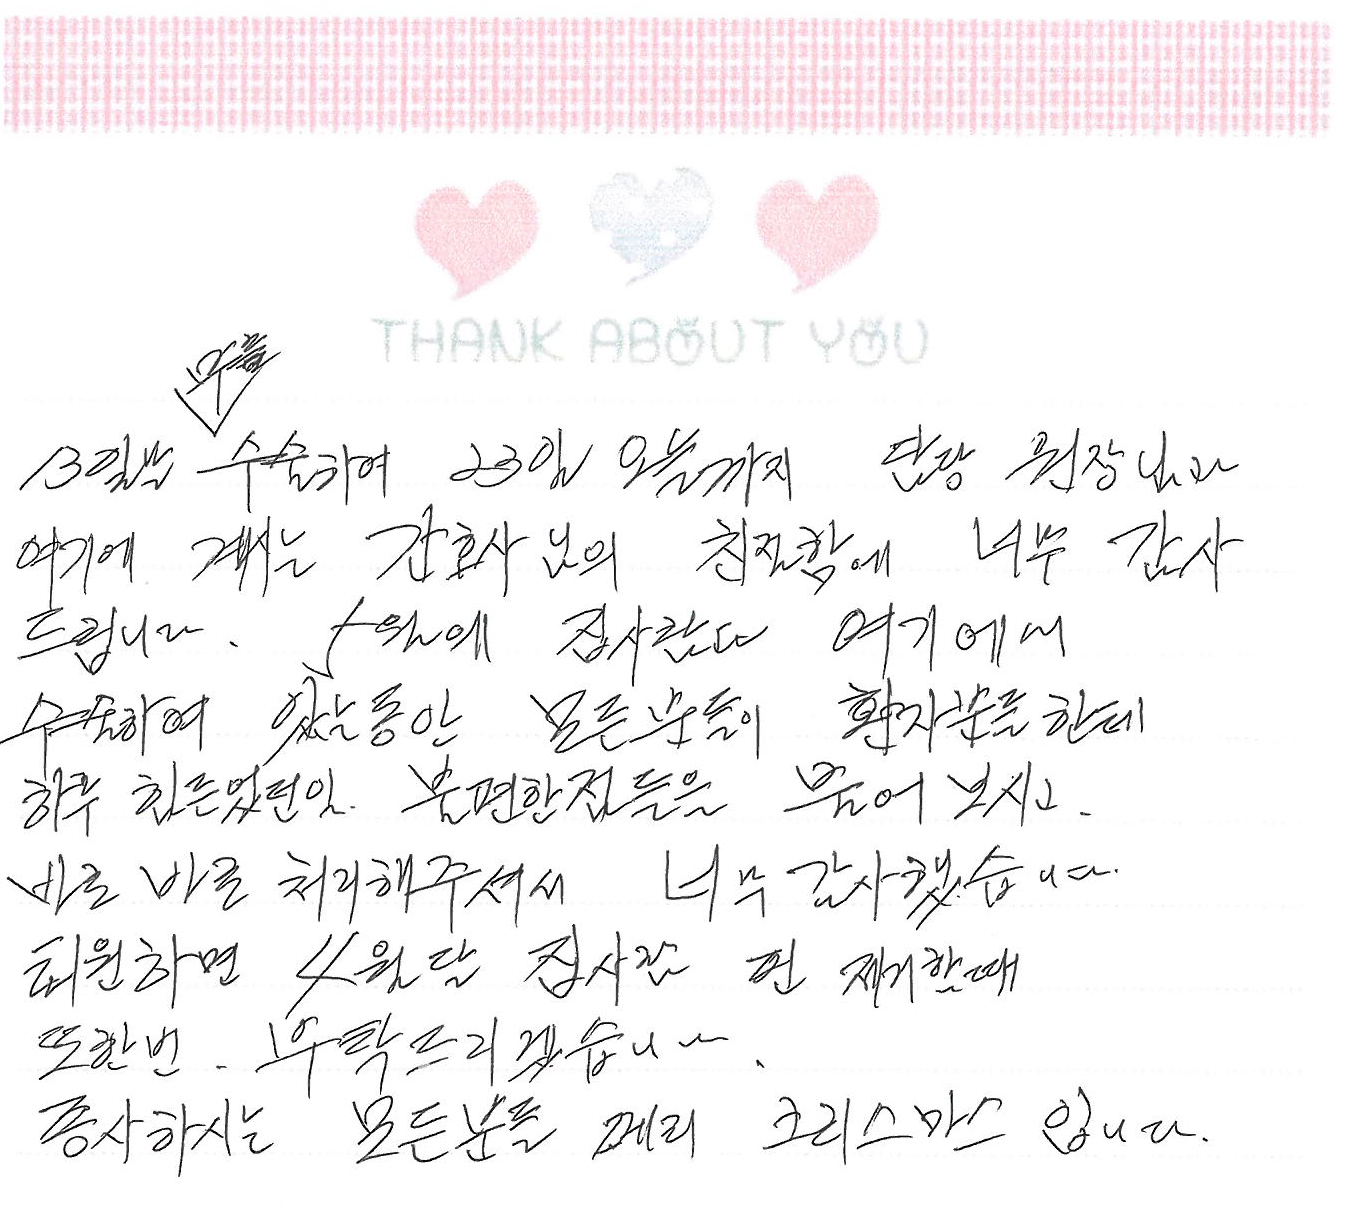 THANK ABOUT YOU
무릎
13일날 수술하여 23일 오늘까지 담당 원장님과
여기에 계시는 간호사님의 친절함에 너무 감사
드립니다. 5월에 집사람도 여기에서
수술하여 있는동안 모든분들이 환자분들한테
하루 힘든었던일. 불편한점들을 물어 보시고.
바로 바로 처리해주셔서 너무 감사했습니다.
퇴원하면 4월달 집사람 핀 제거할때
또한번. 부탁드리겠습니다.
종사하시는 모든분들 메리 크리스마스 입니다.